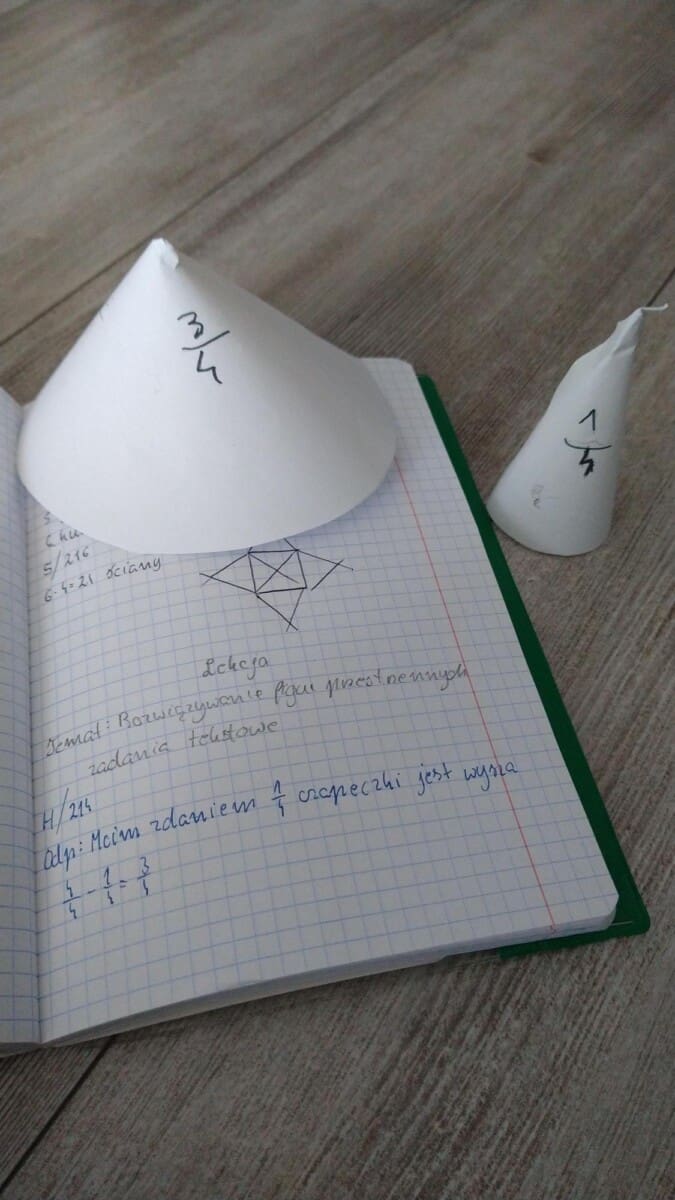 3/4
1/4
5/216
6·4=21 ściany
Lekcja
Temat: Rozwiązywanie figur przestrzennych
zadania tekstowe
H/214
Odp: Moim zdaniem 1/4 czapeczki jest wyższa
4/4 - 1/4 = 3/4